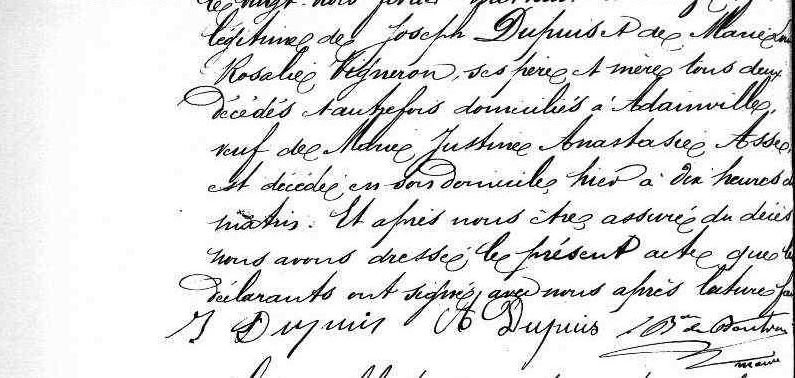 légitime de Joseph Dupuis et de Marie
Rosalie Vigneron, ses père et mère tous deux
décédés et autrefois domiciliés à Adainville,
veuf de Marie Justine Anastasie Asse,
est décédé en son domicile hier à dix heures d
matin. Et après nous être assuré du décès
nous avons dressé le présent acte que le
déclarants ont signé avec nous après lecture fa
J Dupuis A Dupuis
maire